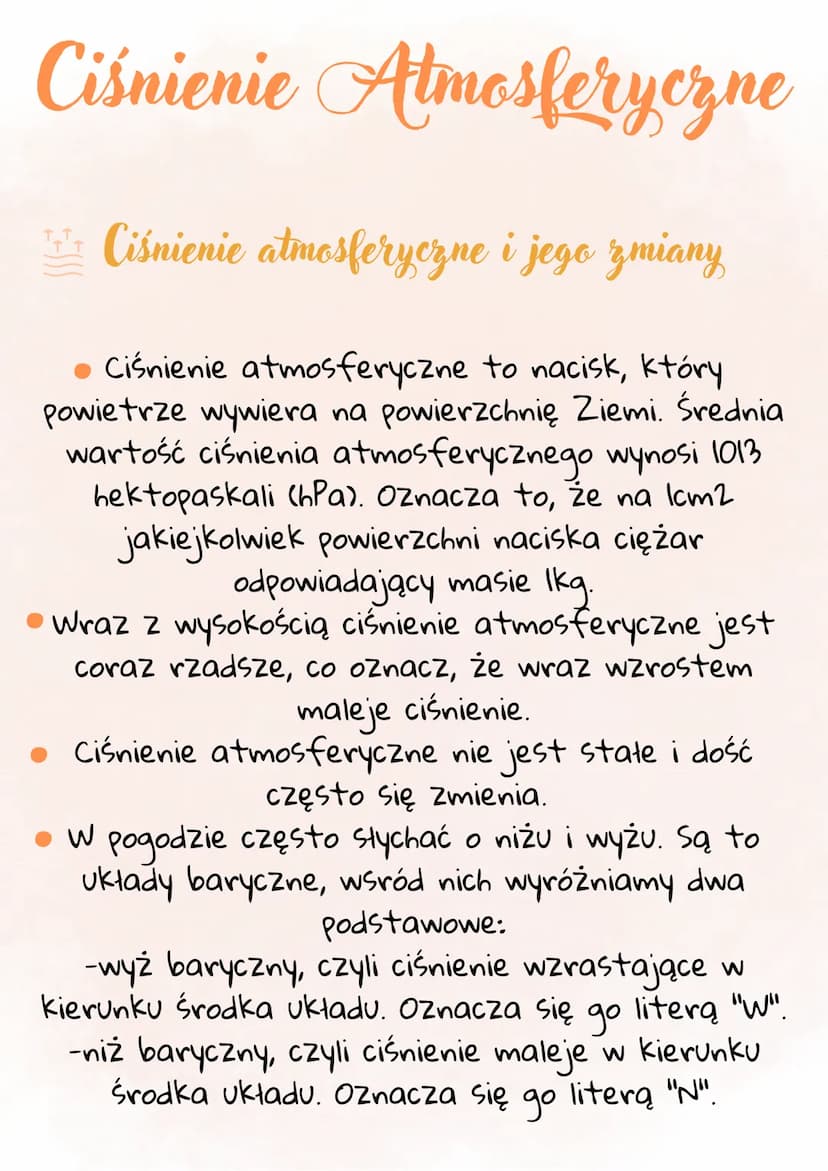 Ciśnienie Atmosferyczne
Ciśnienie atmosferyczne i jego zmiany
• Ciśnienie atmosferyczne to nacisk, który
powietrze wywiera na powierzchnię Ziemi. Średnia
wartość ciśnienia atmosferycznego wynosi 1013
hektopaskali (hPa). Oznacza to, że na 1cm2
jakiejkolwiek powierzchni naciska ciężar
odpowiadający masie 1kg.
• Wraz z wysokością ciśnienie atmosferyczne jest
coraz rzadsze, co oznacz, że wraz wzrostem
maleje ciśnienie.
• Ciśnienie atmosferyczne nie jest stałe i dość
często się zmienia.
• W pogodzie często słychać o niżu i wyżu. Są to
układy baryczne, wsród nich wyróżniamy dwa
podstawowe:
-wyż baryczny, czyli ciśnienie wzrastające w
kierunku środka układu. Oznacza się go literą "W".
-niż baryczny, czyli ciśnienie maleje w kierunku
środka układu. Oznacza się go literą "N".